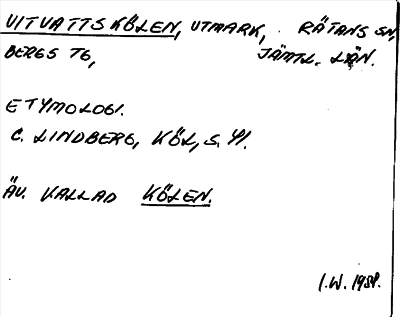 VITVATTSKÖLEN, UTMARK, RÄTANS SN,
BERGS TG, JÄMTL. LÄN.
ETYMOLOGI.
C. LINDBERG, KÖL, S. 41.
ÄV. KALLAD KÖLEN.
I.W. 1981.